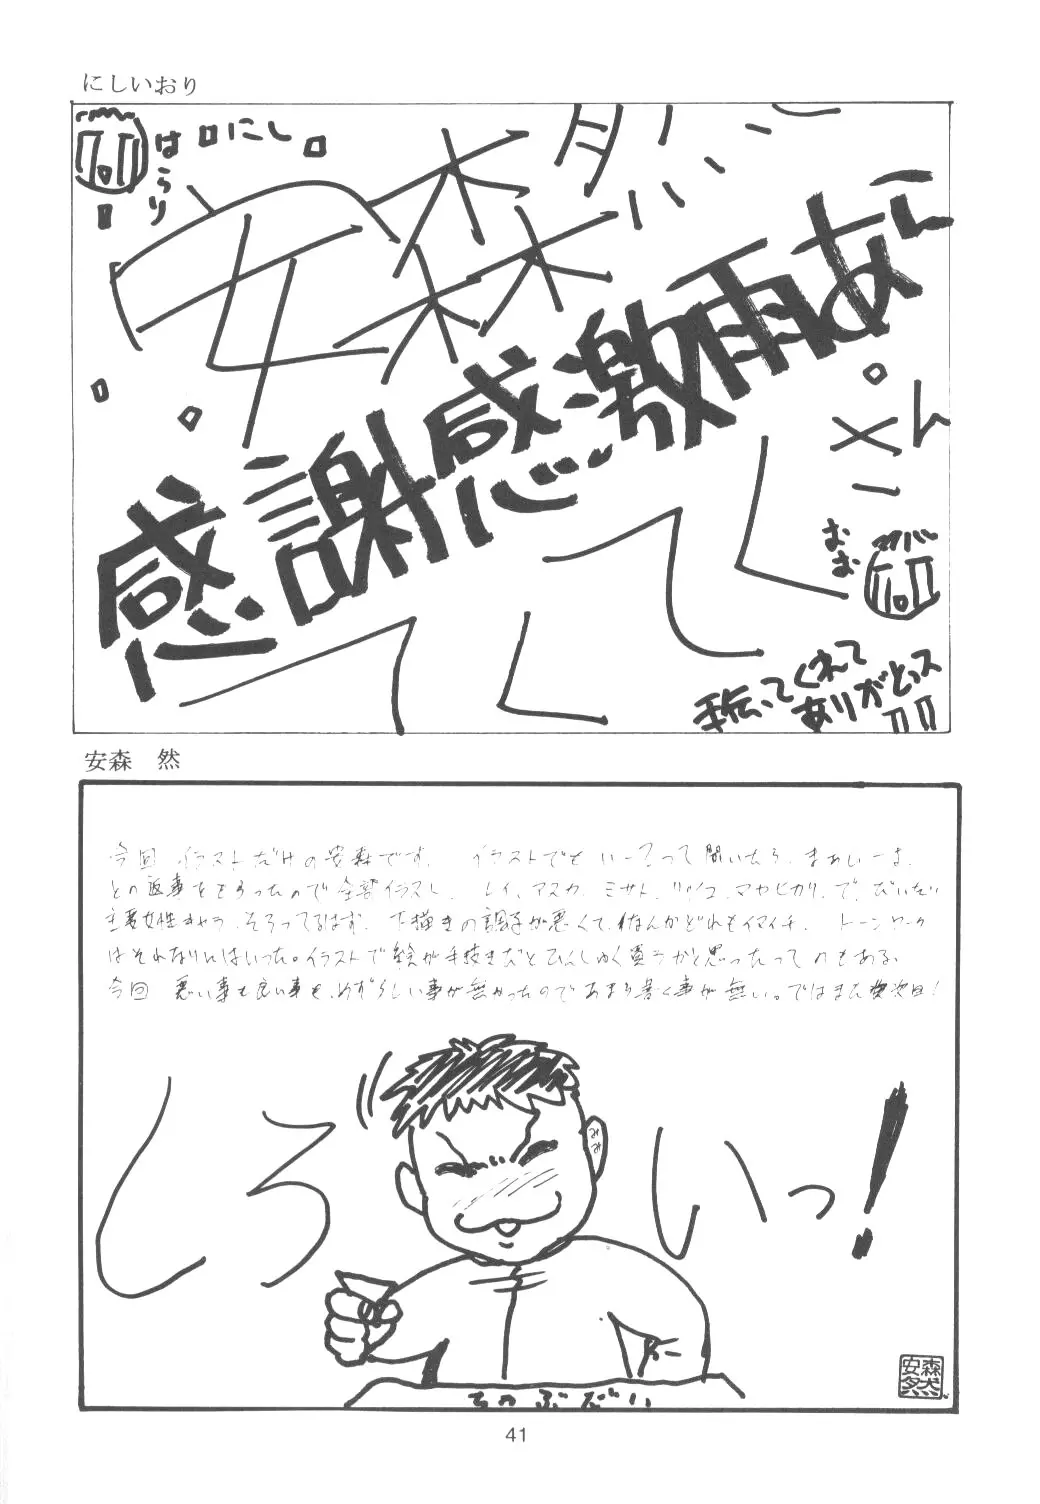 にしいおり
はらり
にし
安森然
感謝感激雨あ
てく
てく
おお
手伝ってくれて
ありがとっス
!!
安森 然
今回 イラストだけの安森です。 イラストでもいーってって聞いたら、まぁいーよ、
との返事をもらったので全部イラスト。 レイ、アスカ、ミサト、リツコ、マヤ、ヒカリ、で、だいたい
主要女性キャラ、そろってるはず。下描きの調子が悪くて、なんかどれもイマイチ。 トーンワーク
はそれなりにはいった。イラストで絵が手抜きだとひんしゅく買うかと思ったってのもある。
今回 悪い事も良い事も、めずらしい事が無かったのであまり書く事が無い。ではまた次回!
しろいっ!
みみ
ちゃぶだい
安森然
41